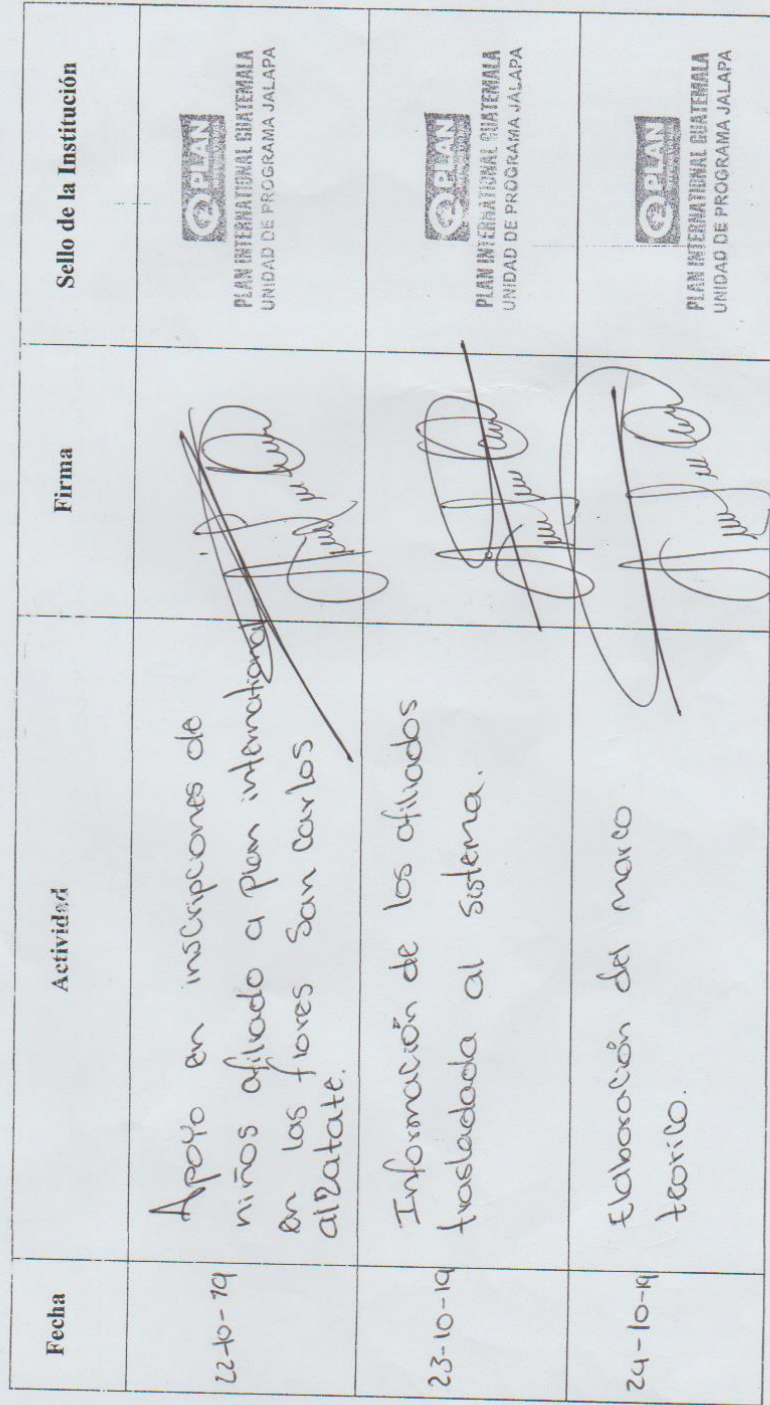 Fecha
Actividad
Firma
Sello de la Institución
22-10-19
Apoyo en inscripciones de
niños afiliado a plan international
en las flores San Carlos
alzatate.
PLAN
PLAN INTERNATIONAL GUATEMALA
UNIDAD DE PROGRAMA JALAPA
23-10-19
Información de los afiliados
trasladada al sistema.
PLAN
PLAN INTERNATIONAL GUATEMALA
UNIDAD DE PROGRAMA JALAPA
24-10-19
Elaboración del marco
teorico.
PLAN
PLAN INTERNATIONAL GUATEMALA
UNIDAD DE PROGRAMA JALAPA